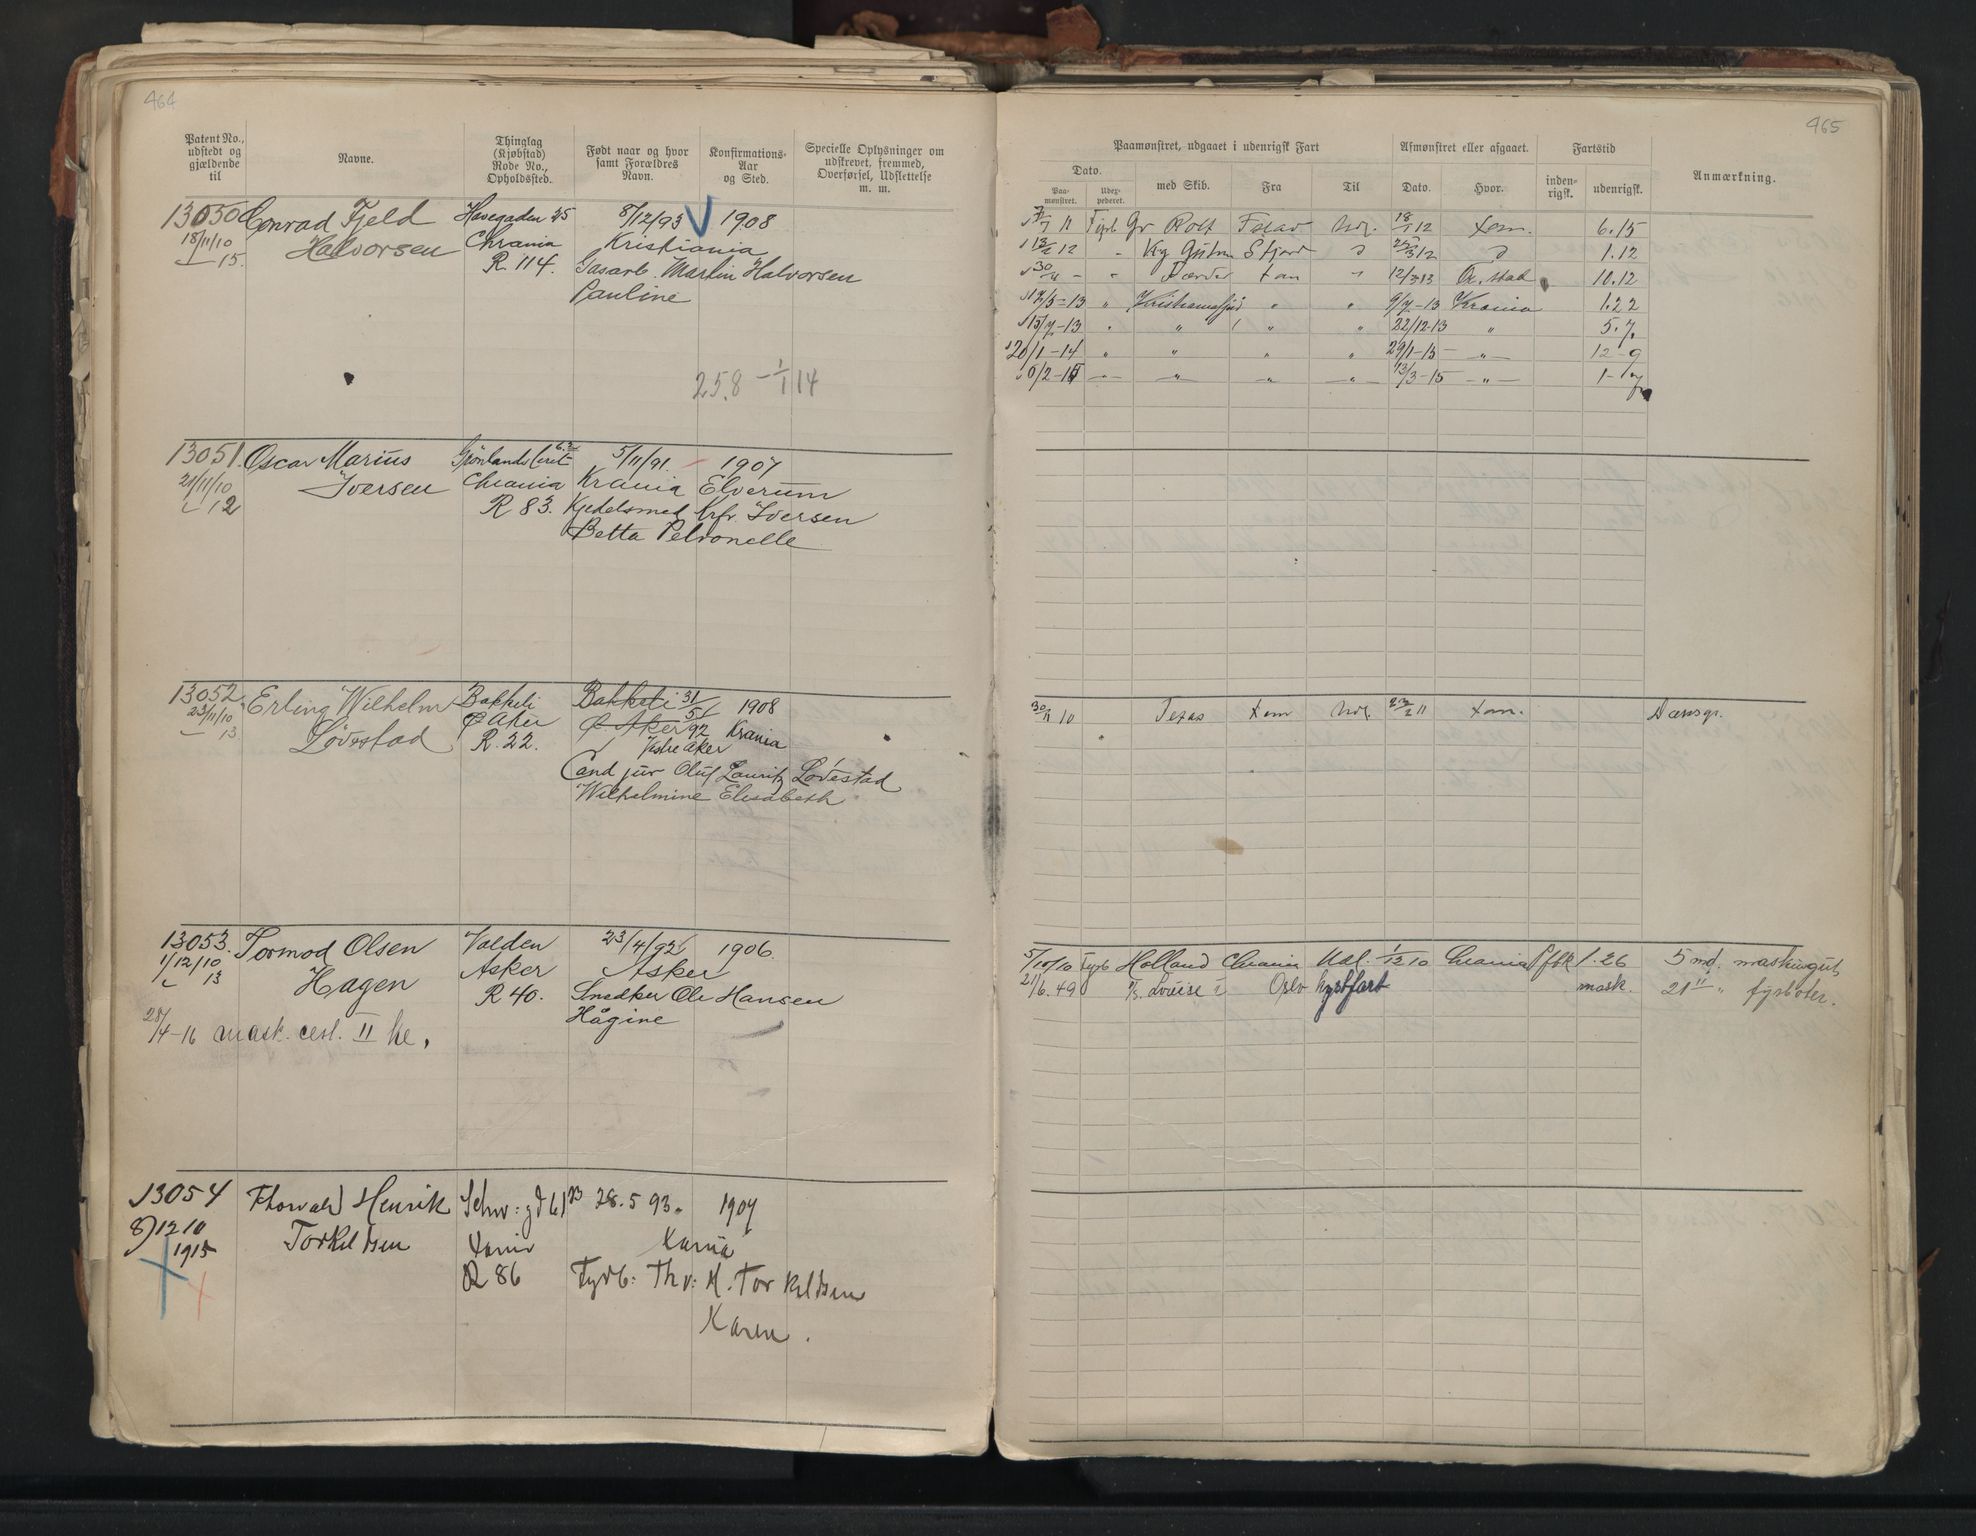 464
Patent No., udstedt og gjældende til
Navne.
Thinglag (Kjøbstad) Rode No., Opholdssted.
Født naar og hvor samt Forældres Navn.
Konfirmations-Aar og Sted.
Specielle Oplysninger om udskrevet, fremmed, Overførsel, Udslettelse m. m.
13050 Conrad Fjeld Havegaden 25 8/12/93 1908
18/11/10 Halvorsen Chrania Kristiania
15. R. 114. Gasarb. Martin Halvorsen
Pauline
258 – 1/1 14
13051. Oscar Marius Grönlands 5/11/91. 1907
21/11/10 Iversen Chrania Krania Elverum
12 R 83. Kjedelsmed Krfr. Iversen
Betta Petronelle
13052. Erling Wilhelm Bakkeli Bakkeli 31/5 92 1908
23/11/10 Lövestad Ø Aker Ø. Aker Krania
13 R. 22. Vestre Aker
Cand jur Oluf Lauritz Lövestad
Wilhelmine Elisabeth
13053. Tormod Olsen Valden 23/4/92 1906.
1/12/10 Hagen Asker Asker
13 R 40. Snedker Ole Hansen
Hågine
28/4-16 mask. cert. II kl.
13054 Thorvald Henrik 28.5 93. 1907
8/12 10 Torkildsen Xania Xania
1915 R 86 Fyrb: Thv: H. Torkildsen
Karen.
465
Paamønstret, udgaaet i udenrigsk Fart
Afmønstret eller afgaaet.
Fartstid
Anmærkning.
Dato.
Paa-mønstret.
Udex-pederet.
med Skib.
Fra
Til
Dato.
Hvor.
inden-rigsk.
udenrigsk.
11 Fyrb Gr Rolf Udl. 18/1 12 Xan. 6.15
12 " Kg Gustav Sfjord 12 1.12
30/4 - " Færder Xan 12/3 13 Fr. stad 10.12
13 " Kristianiafjord " " 9/7-13 Krania 1.22
15/7-13 " " " " 22/12-13 " 5.7.
20/1-14 " " " " 29/1-15 " 12-9
6/2-15 " " " " 13/3-15 " 1-7
30/11 10 Texas Xan Udl. 11 Xan. Dæksgr.
5/10/10 Fyrb Holland Chrania Udl. 1/12 10 Chrania 1.26 5 md. maskingut
21/6.49 Louise Oslo kystfart mask. 21 " fyrböter.